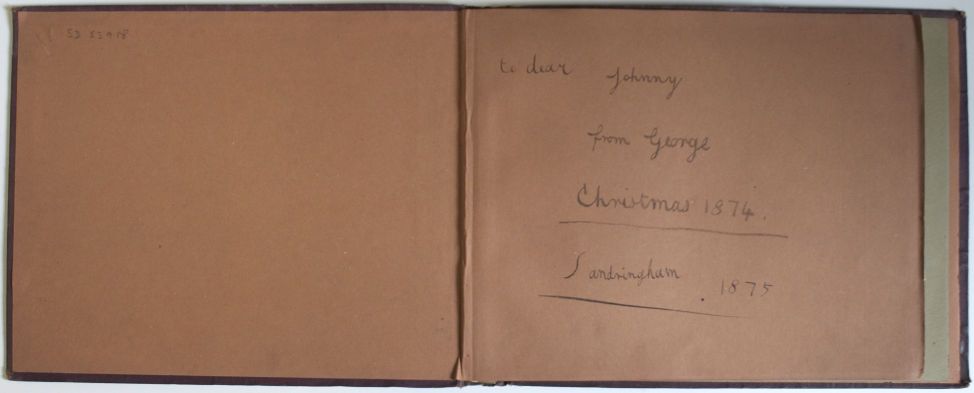 to dear Johnny
from George
Christmas 1874.
Sandringham . 1875